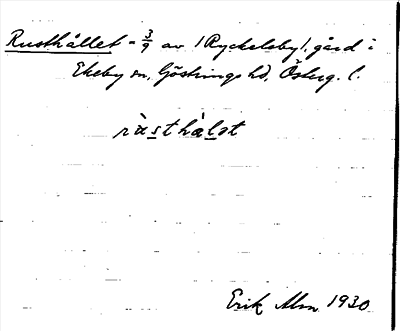 Rusthållet = 3/9 av /Ryckelsby/, gård i
Ekeby sn, Göstrings hd, Österg. l.
rùsthàlət
Erik Alm 1930